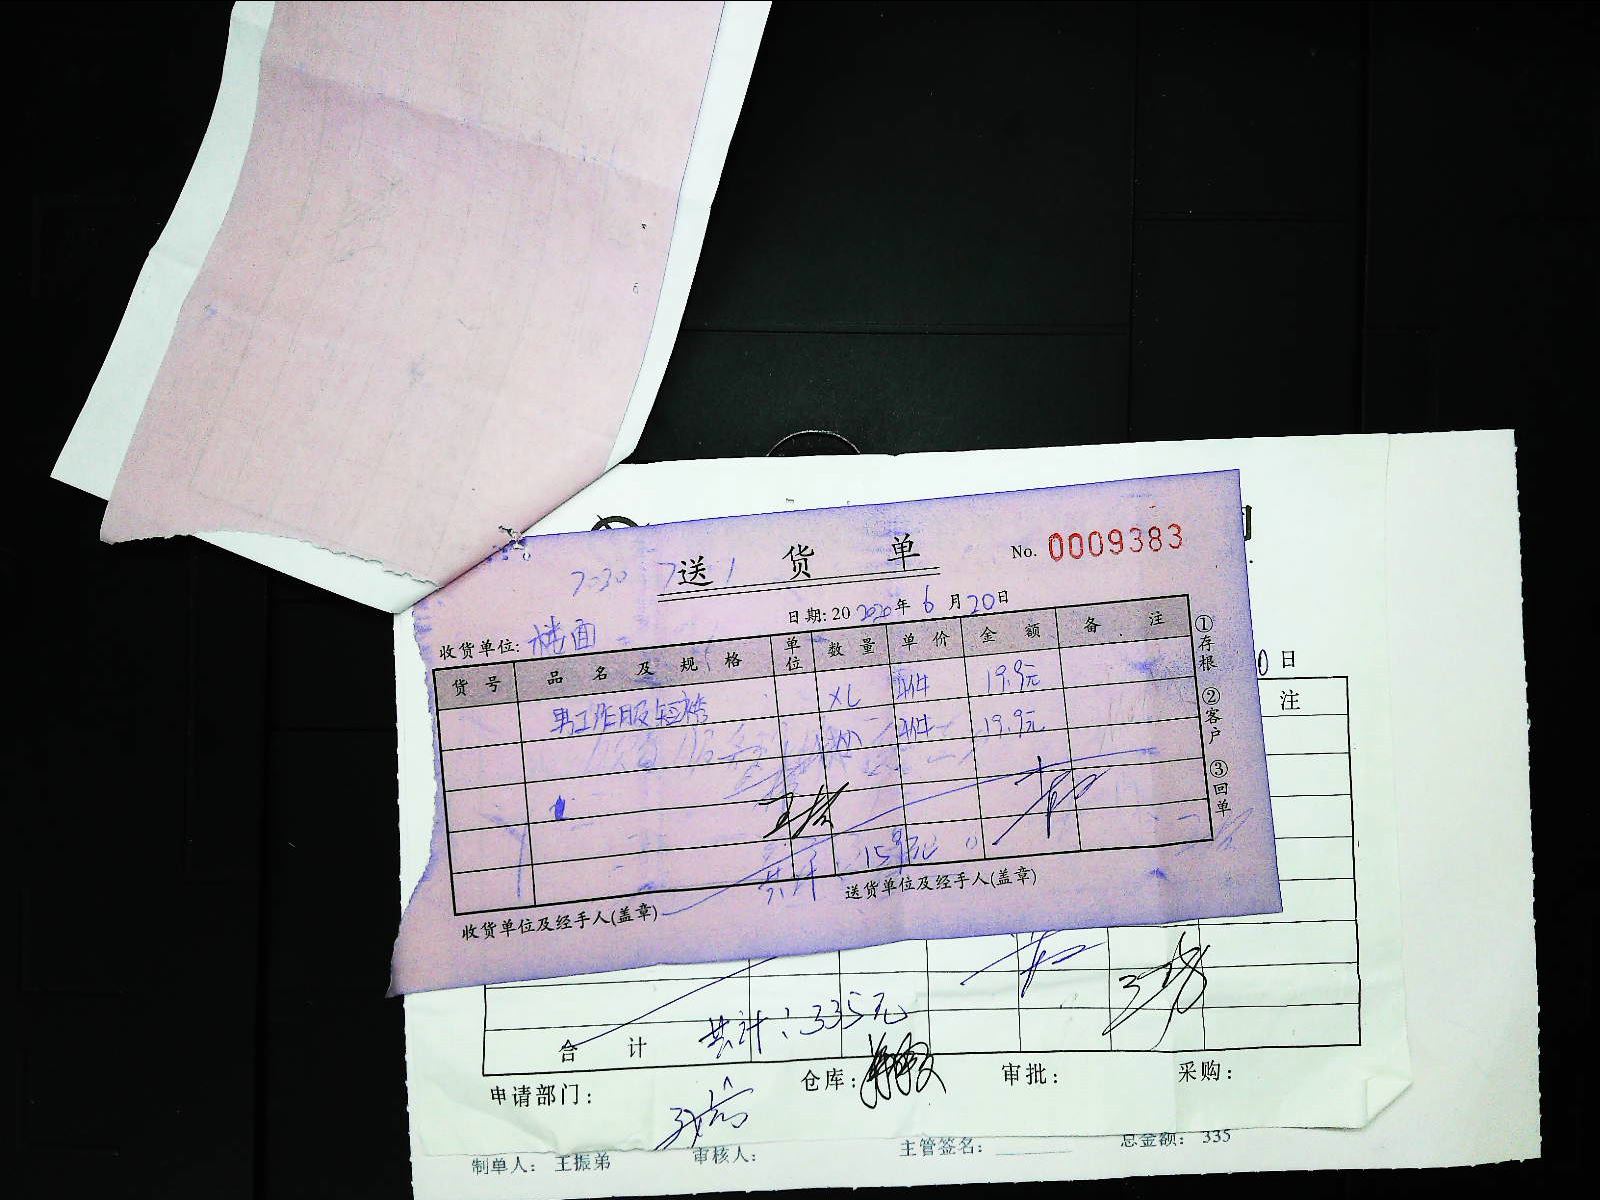 送 货 单 No. 0009383
日期: 20 2020年 6 月 20日
收货单位: 楼面
货 号 品 名 及 规 格 单位 数 量 单 价 金 额 备 注
男工作服短裤 XL 4件 19.9元
4件 19.9元
①存根 ②客户 ③回单
收货单位及经手人(盖章) 送货单位及经手人(盖章)
0日
注
合 计 共计:335元
申请部门: 仓库: 审批: 采购:
制单人: 王振弟 审核人: 主管签名: 总金额: 335